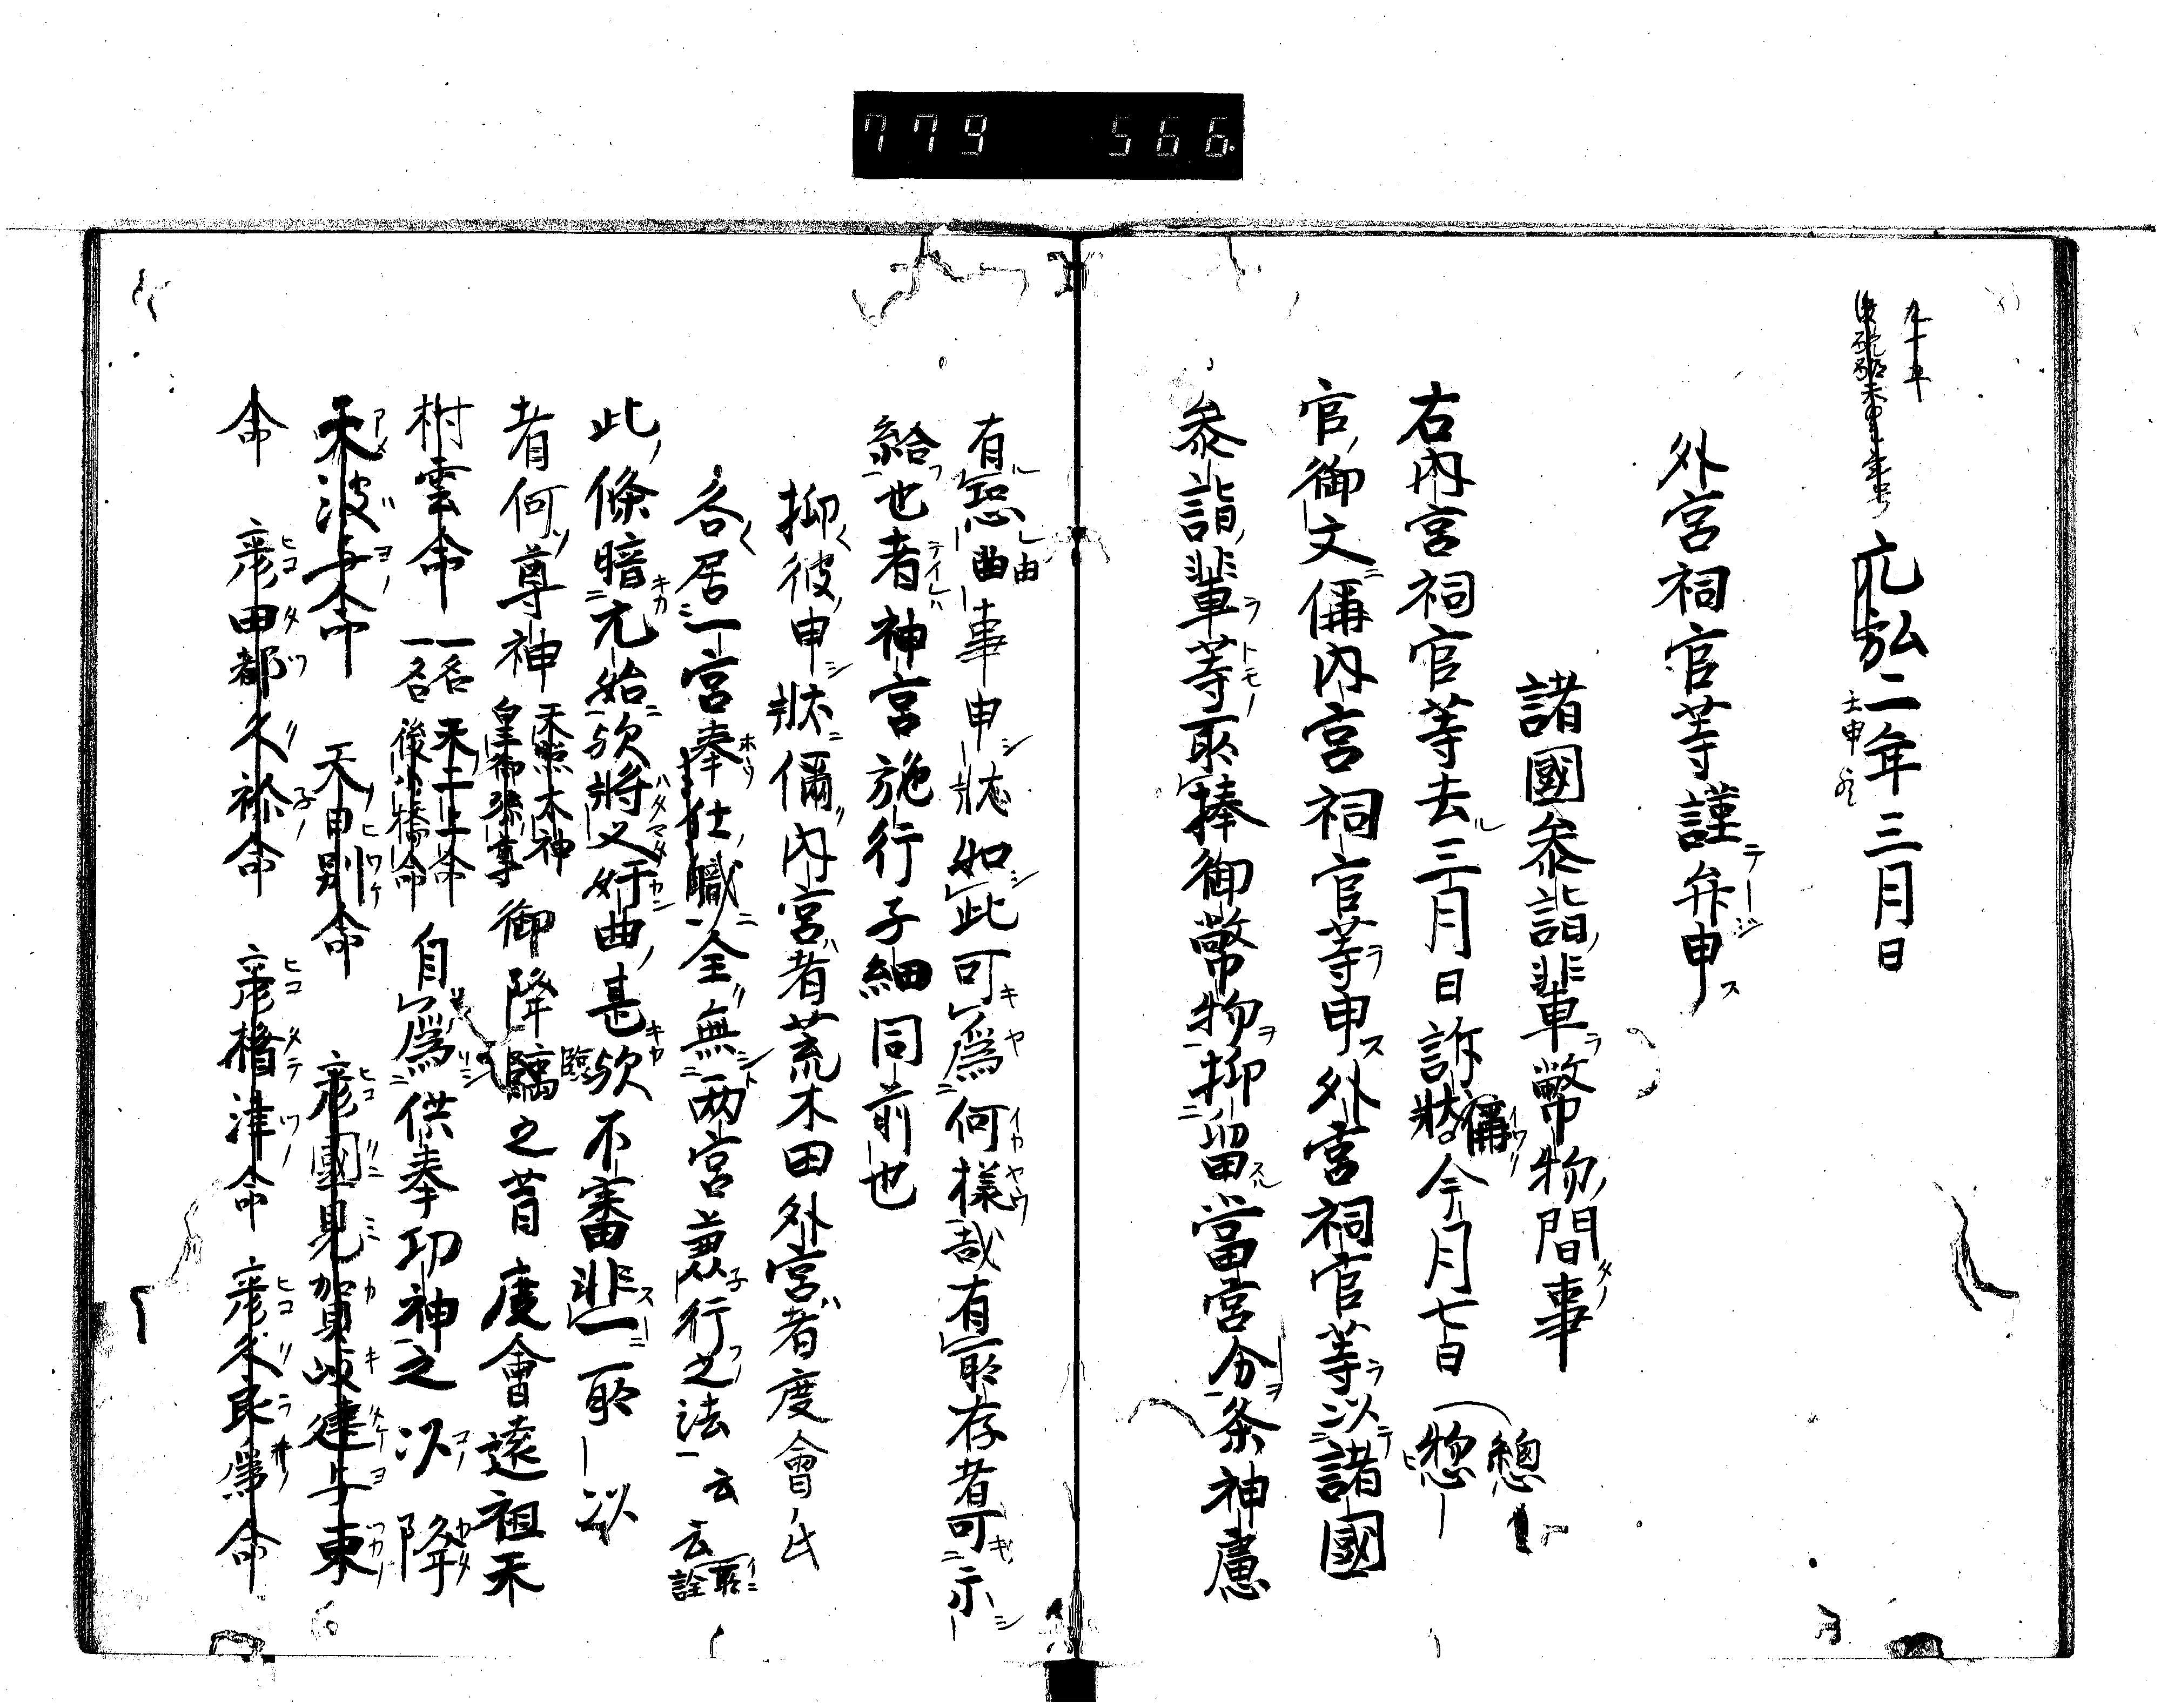 779 566
九十五
後醍醐天皇年号
元弘二年三月日
壬申
外宮祠官等謹弁申
諸國参詣輩幣物間事
右内宮祠官等去三月日訴状偁今月七日惣
官御文偁内宮祠官等申外宮祠官等以諸國
参詣輩等所捧御幣物抑留當宮分条神慮
有恐曲事申状如此可為何様哉有所存者可示
給也者神宮施行子細同前也
抑彼申状偁内宮者荒木田外宮者度會氏
各居一宮奉仕職全無両宮兼行之法云云所詮
此條暗元始歟将又奸曲甚歟不審非一所以
者何尊神天照太神皇御孫尊御降臨之昔度會遠祖天
村雲命一名天二上命一名後小橋命自為供奉功神之以降
天波与命 天日別命 彦國見賀岐建与束
命 彦田都久祢命 彦楯津命 彦久良為命